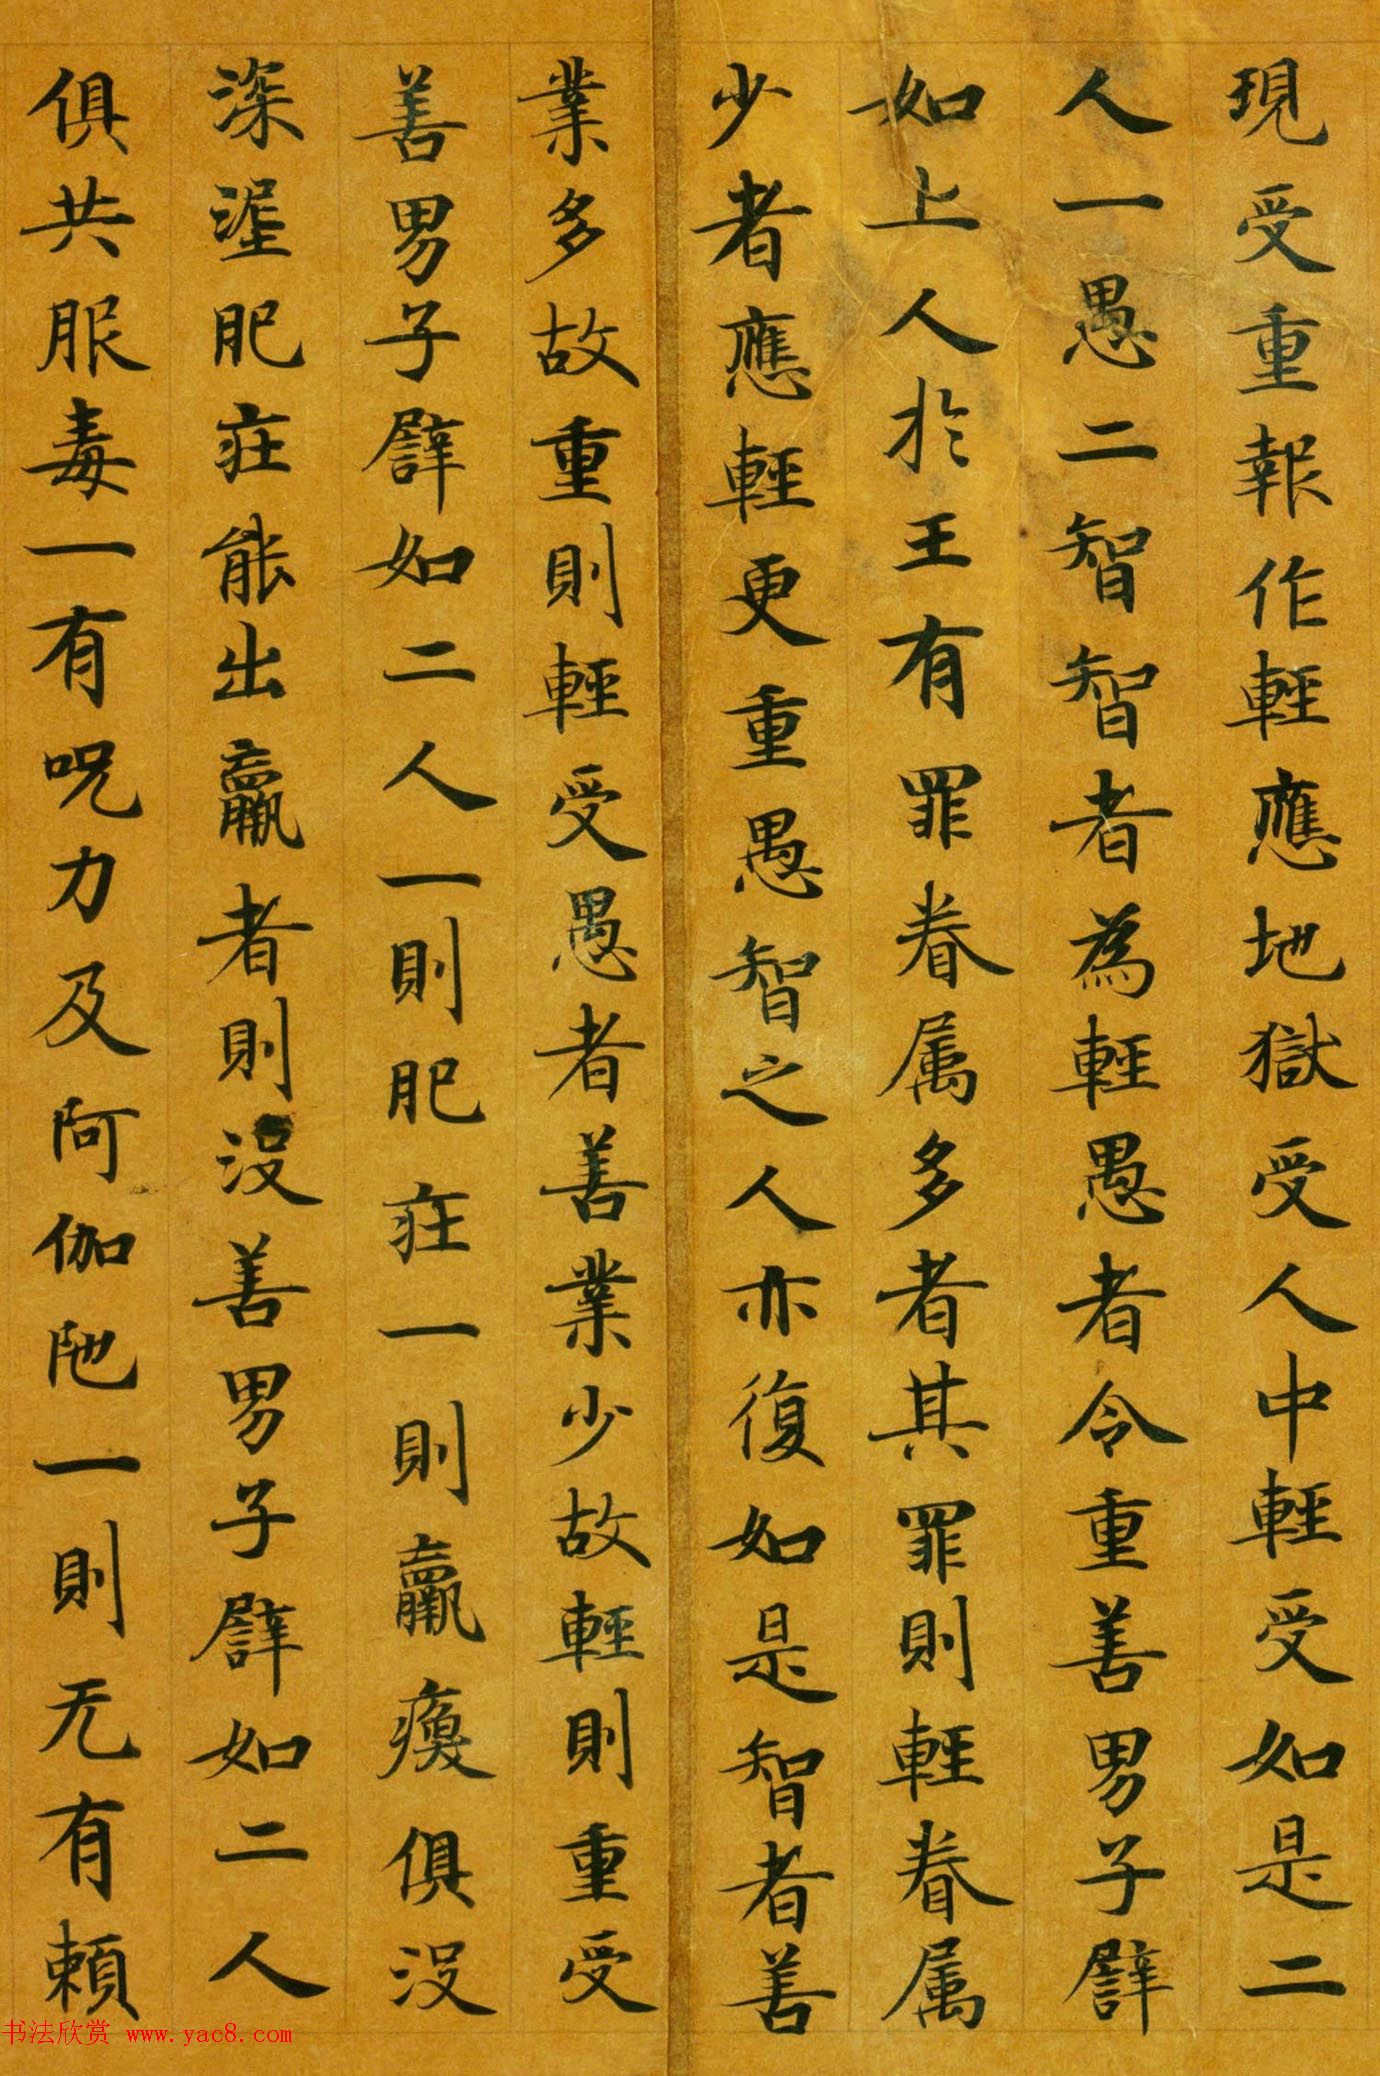 現受重報作輕應地獄受人中輕受如是二
人一愚二智智者為輕愚者令重善男子譬
如上人於王有罪眷属多者其罪則輕眷属
少者應輕更重愚智之人亦復如是智者善
業多故重則輕受愚者善業少故輕則重受
善男子譬如二人一則肥疰一則羸瘓俱没
深渥肥疰能出羸者則没善男子譬如二人
俱共服毒一有呪力及阿伽陁一則无有頼
书法欣赏 www.yac8.com